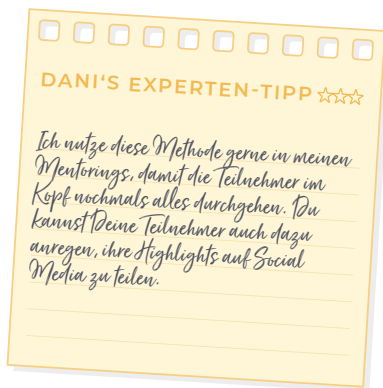 DANI'S EXPERTEN-TIPP
Ich nutze diese Methode gerne in meinen
Mentorings, damit die Teilnehmer im
Kopf nochmals alles durchgehen. Du
kannst Deine Teilnehmer auch dazu
anregen, ihre Highlights auf Social
Media zu teilen.